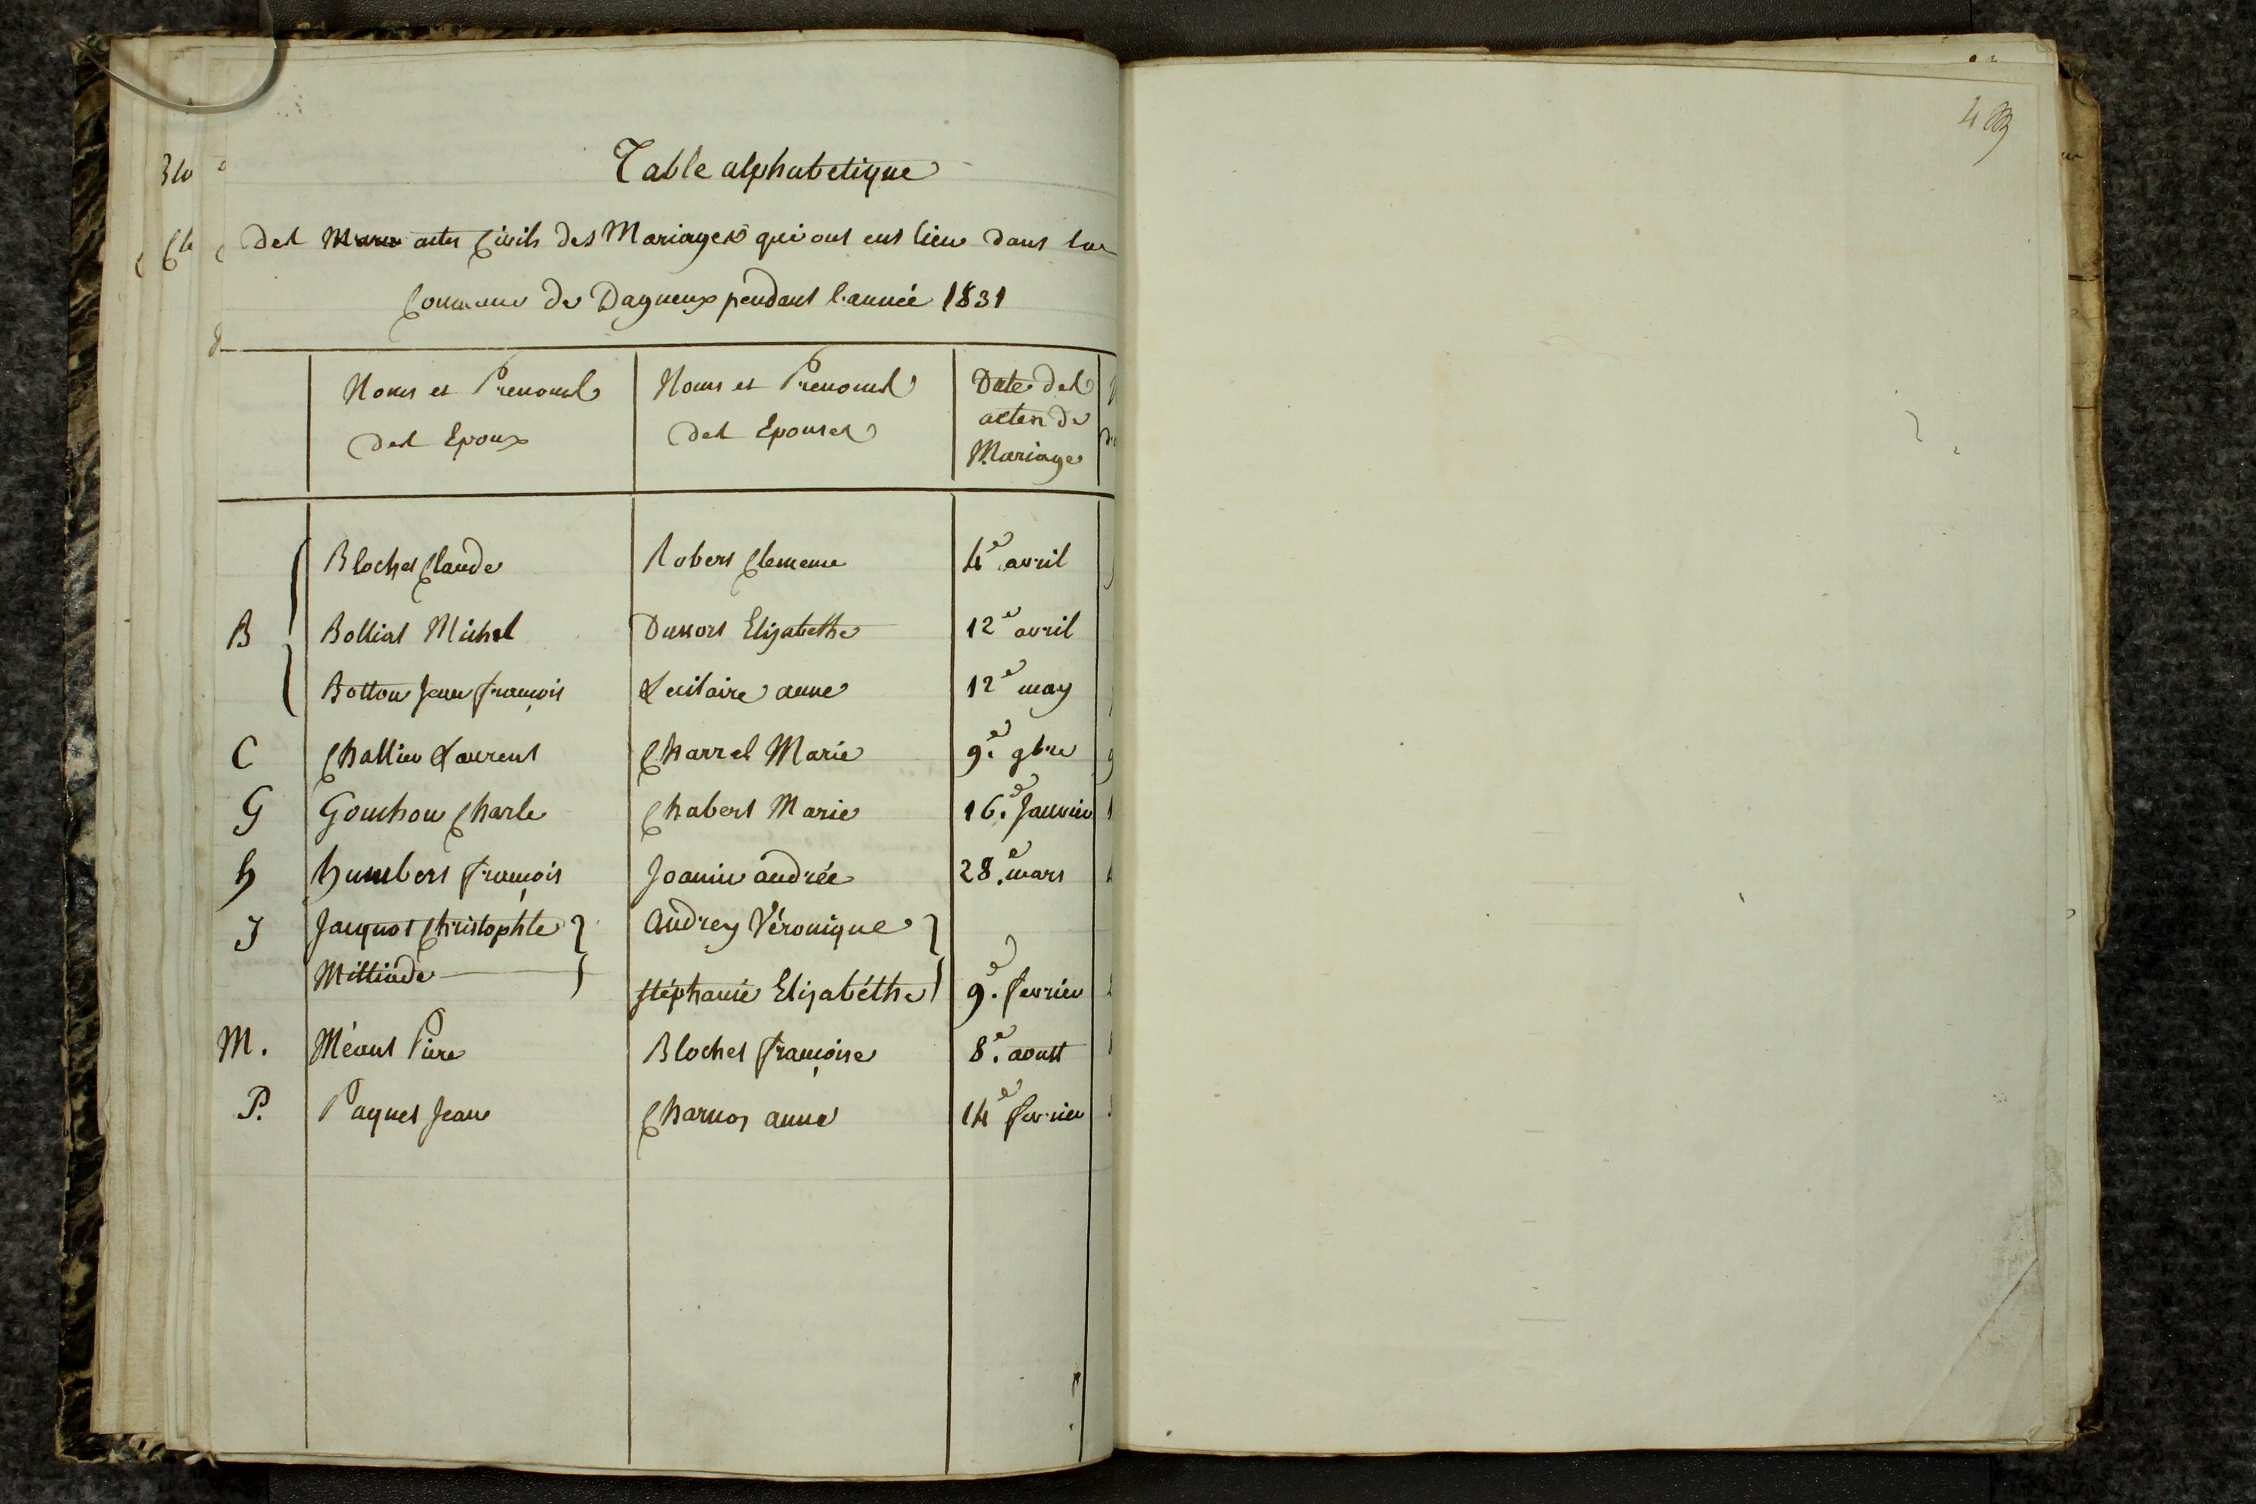 Table alphabetique
des actes Civils des Mariages qui ont eut lieu dans la
Commune de Dagneux pendant l'année 1831
Noms et Prenoms des Epoux | Noms et Prenoms des Epouses | Date des actes de Mariage
B | Blochet Claude | Robert Clemence | 4e avril
Bolliat Michel | Dussort Elizabethe | 12e avril
Botton Jean françois | Lecitaire anne | 12e may
C | Challieu Laurent | Charrel Marie | 9.e 9bre
G | Gouchon Charle | Chabert Marie | 16.e Janvier
h | humbert françois | Joanin andrée | 28.e mars
J | Jacquot Christophle | Andrey Véronique
Miltiade | stéphanie Elizabéthe | 9.e fevrier
M. | Méant Piere | Blochet françoise | 8.e aoust
P. | Paquet Jean | Charnoz anne | 14e fevrier